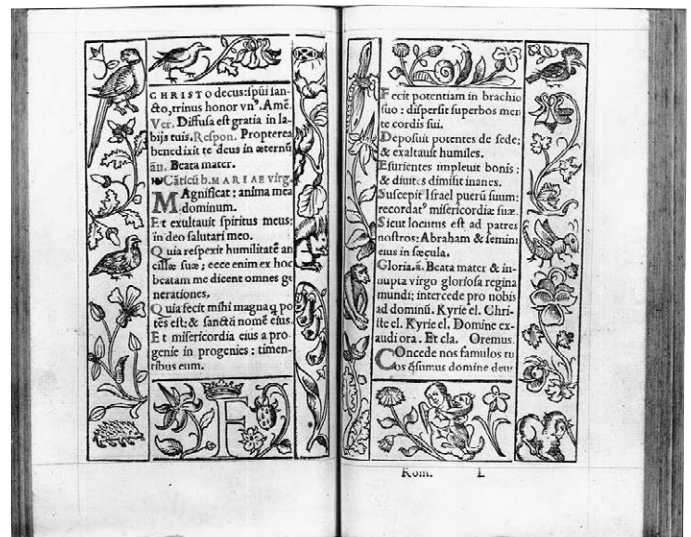 CHRISTO decus: spũi san-
cto, trinus honor vnꝰ. Amẽ.
Ver. Diffusa est gratia in la-
bijs tuis. Respon. Propterea
benedixit te deus in æternũ
ãn. Beata mater.
Cãticũ b. MARIAE virg.
MAgnificat: anima mea
dominum.
Et exultauit spiritus meus:
in deo salutari meo.
Quia respexit humilitatẽ an
cillæ suæ; ecce enim ex hoc
beatam me dicent omnes ge
nerationes.
Quia fecit mihi magna q̃ po
tẽs est: & sanctũ nomẽ eius.
Et misericordia eius a pro-
genie in progenies: timen-
tibus eum.
F
Fecit potentiam in brachio
suo: dispersit superbos men
te cordis sui.
Deposuit potentes de sede;
& exaltauit humiles.
Esurientes impleuit bonis:
& diuites dimisit inanes.
Suscepit Israel puerũ suum:
recordatꝰ misericordiæ suæ.
Sicut locutus est ad patres
nostros: Abraham & semini
eius in sæcula.
Gloria. ã. Beata mater & in-
nupta virgo gloriosa regina
mundi; intercede pro nobis
ad dominũ. Kyrie el. Chri-
ste el. Kyrie el. Domine ex-
audi ora. Et cla. Oremus.
COncede nos famulos tu
os q̃sumus domine deus
Rom. L